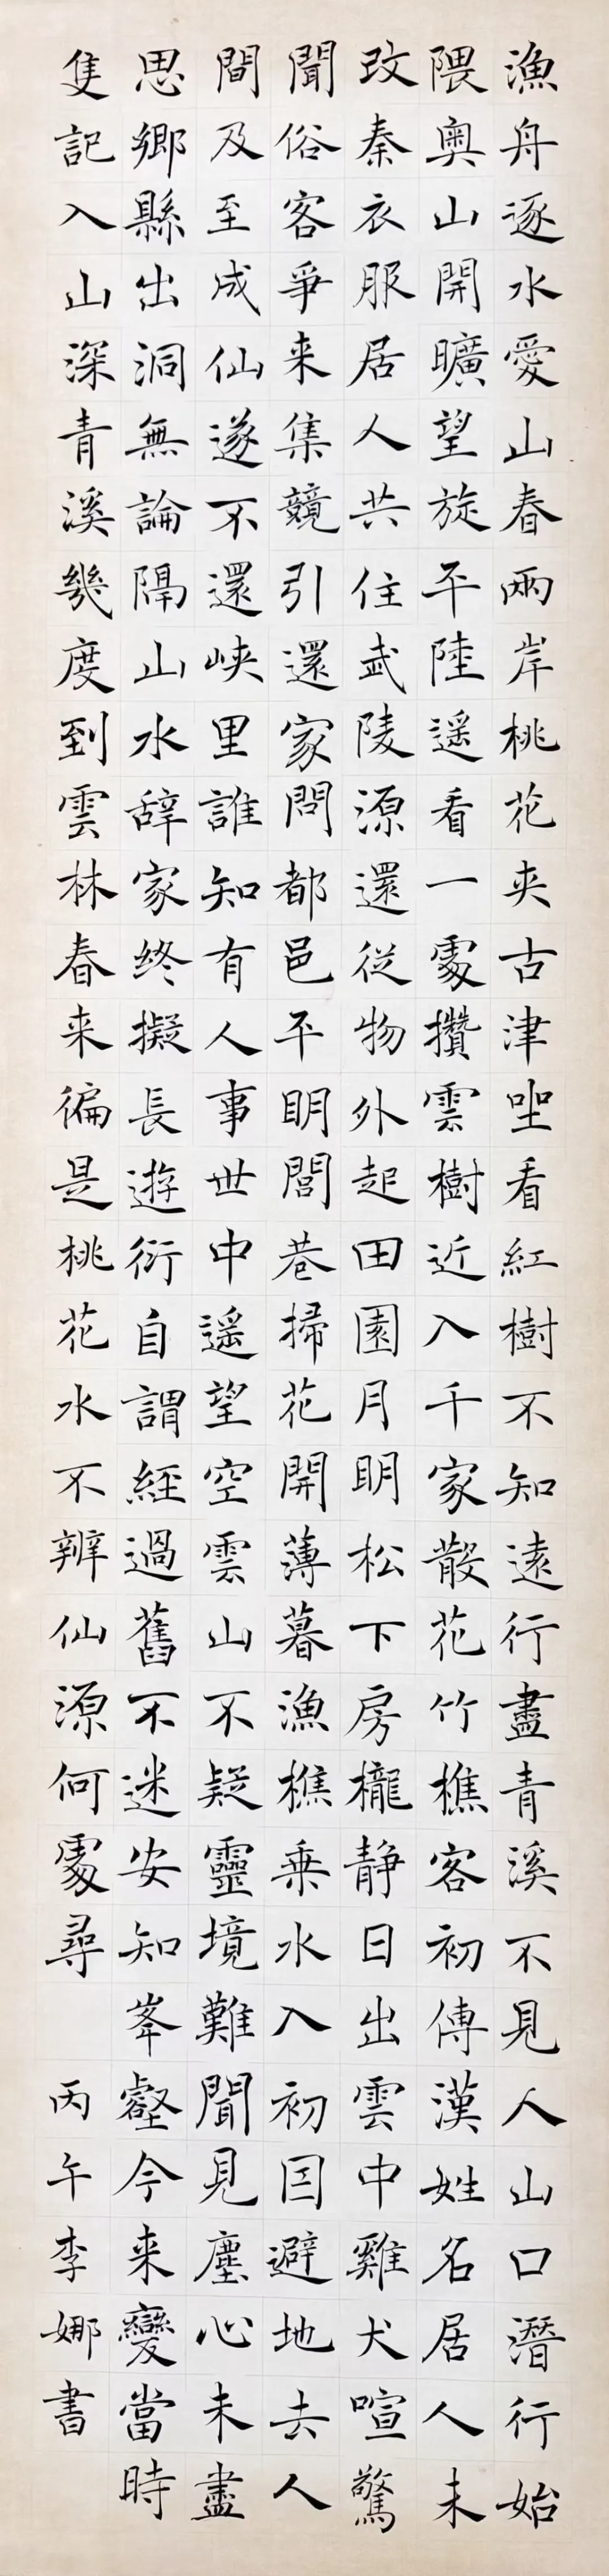 漁舟逐水愛山春兩岸桃花夾古津坐看紅樹不知遠行盡青溪不見人山口潛行始
隈奧山開曠望旋平陸遥看一處攢雲樹近入千家散花竹樵客初傳漢姓名居人未
改秦衣服居人共住武陵源還從物外起田園月眀松下房櫳静日出雲中雞犬喧驚
聞俗客爭来集競引還家問都邑平眀閭巷掃花開薄暮漁樵乗水入初囙避地去人
間及至成仙遂不還峽里誰知有人事世中遥望空雲山不疑靈境難聞見塵心未盡
思鄉縣出洞無論隔山水辞家終擬長遊衍自謂経過舊不迷安知峯壑今来變當時
隻記入山深青溪幾度到雲林春来徧是桃花水不辨仙源何處尋 丙午李娜書